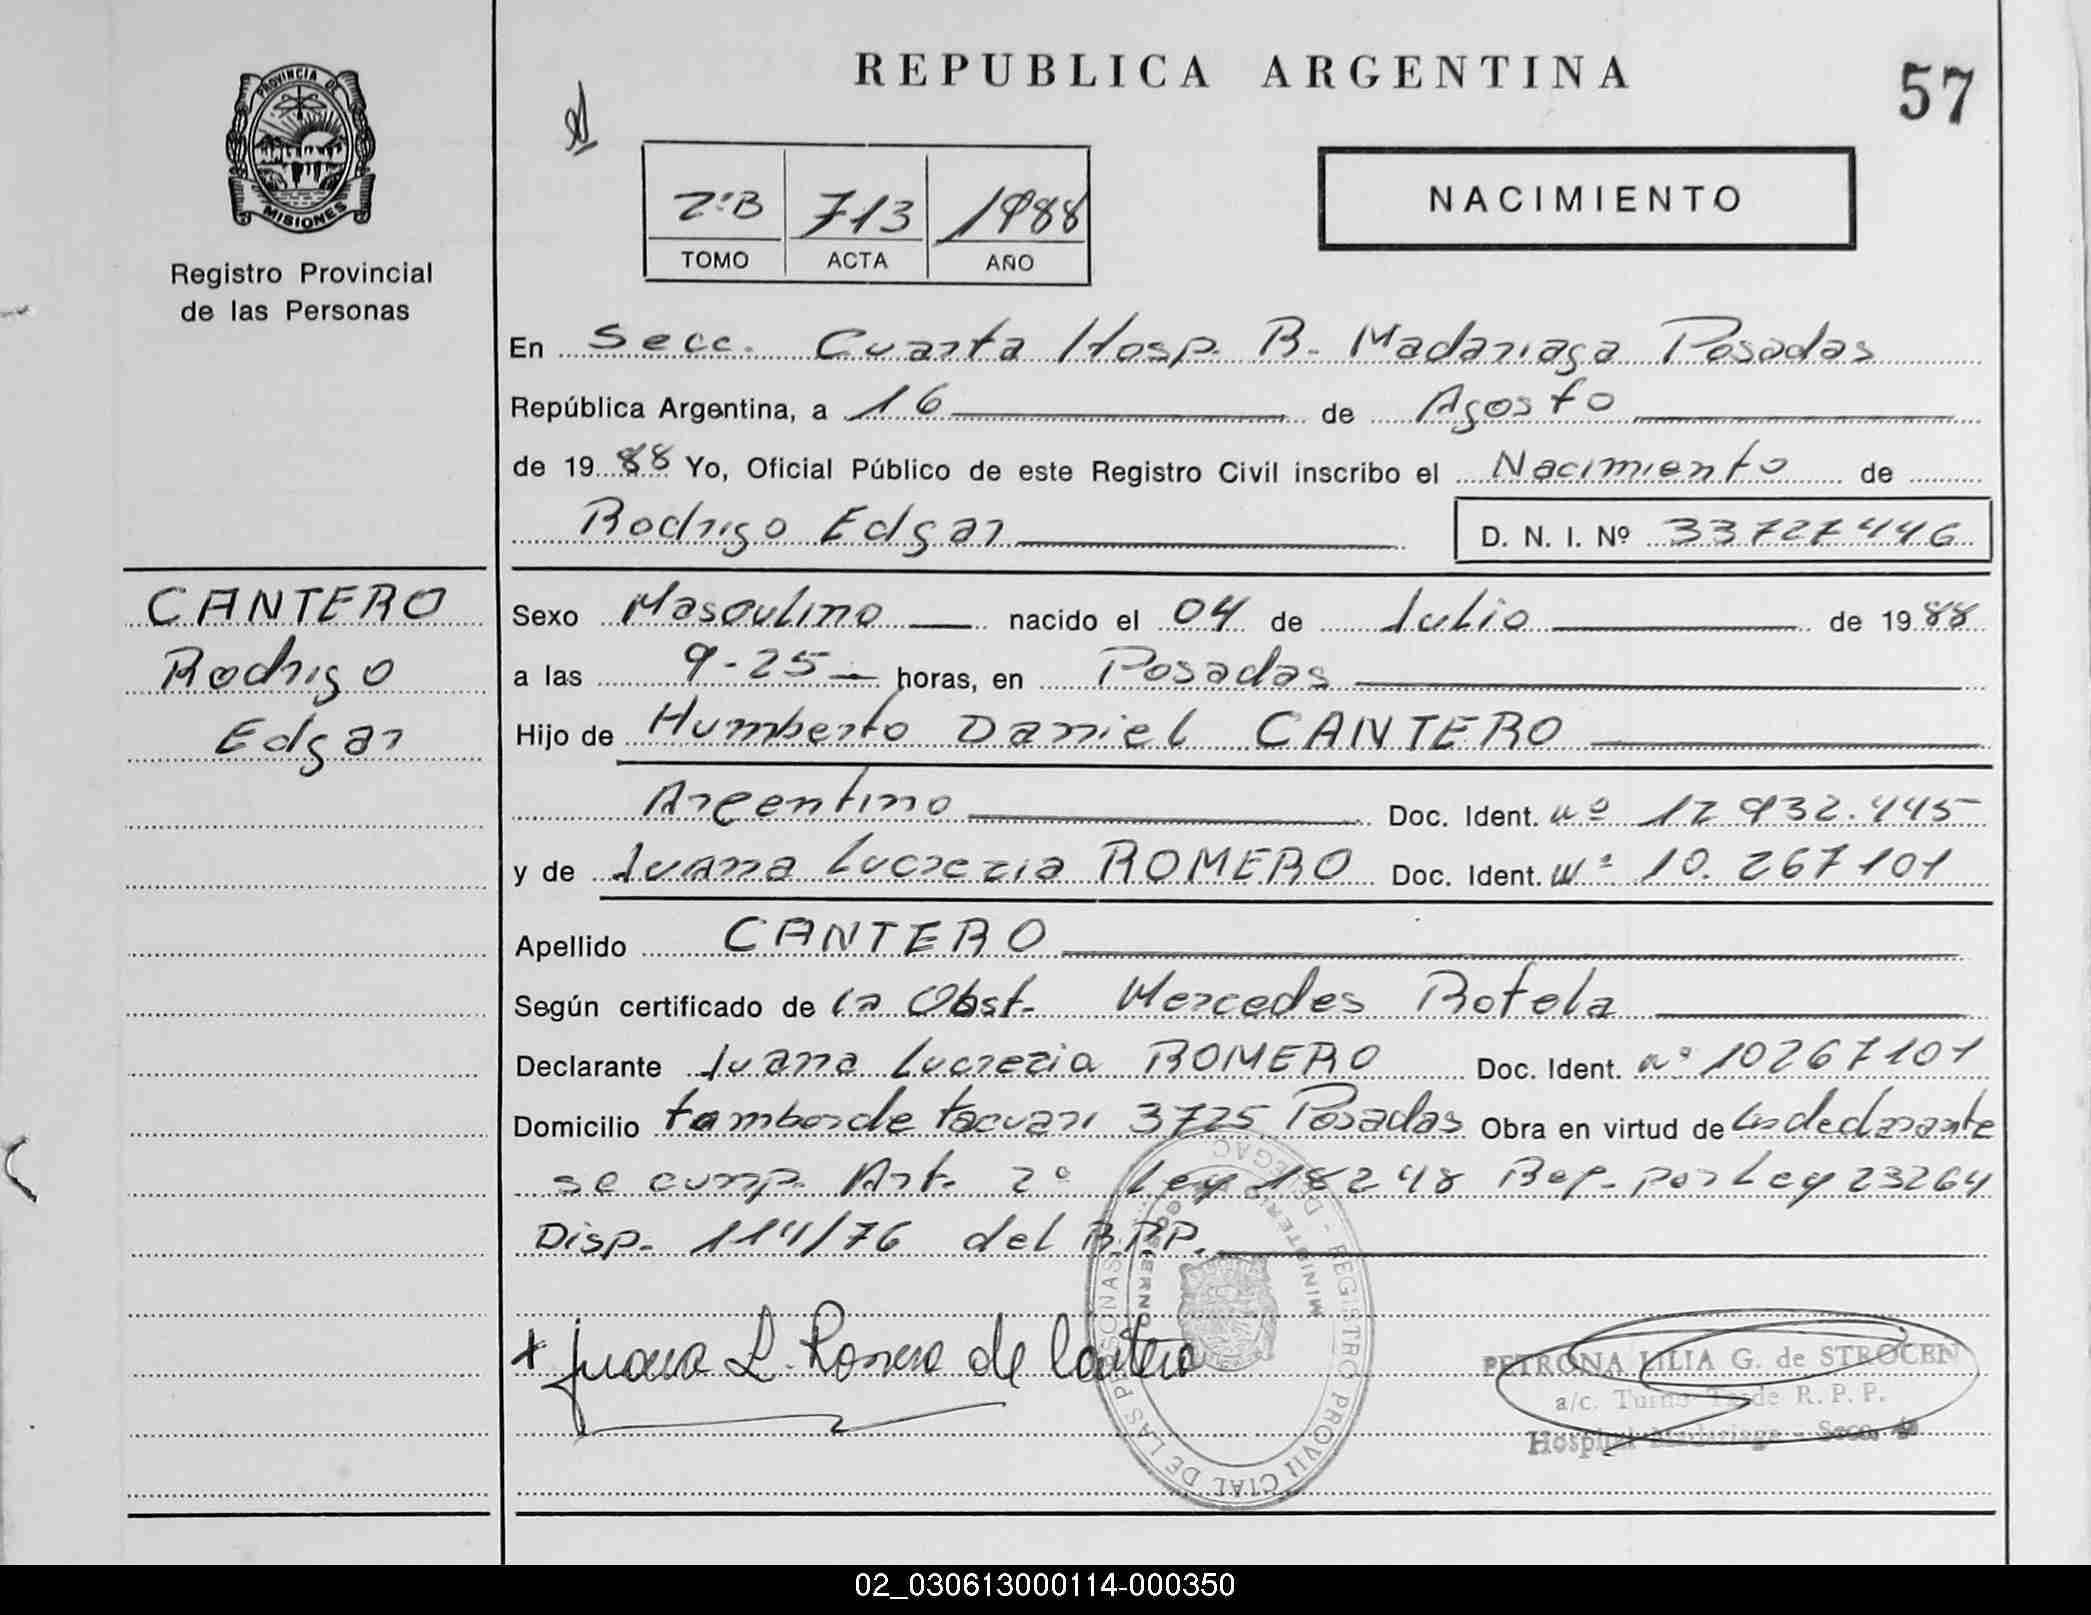 REPUBLICA ARGENTINA
57
PROVINCIA DE
MISIONES
Registro Provincial
de las Personas
2ºB 713 1988
TOMO ACTA AÑO
NACIMIENTO
En Secc. Cuarta Hosp. R. Madariaga Posadas
República Argentina, a 16 de Agosto
de 1988 Yo, Oficial Público de este Registro Civil inscribo el Nacimiento de
Rodrigo Edgar D. N. I. Nº 33727446
CANTERO
Rodrigo
Edgar
Sexo Masculino nacido el 04 de Julio de 1988
a las 9-25 horas, en Posadas
Hijo de Humberto Daniel CANTERO
Argentino Doc. Ident. nº 12 932.445
y de Juana Lucrezia ROMERO Doc. Ident. nº 10.267101
Apellido CANTERO
Según certificado de la Obst. Mercedes Rotela
Declarante Juana Lucrezia ROMERO Doc. Ident. nº 10267101
Domicilio tambor de tacuari 3725 Posadas Obra en virtud de La declarante
se cump. Art. 2º Ley 18248 Rep. por Ley 23264
Disp. 114/76 del R.P.P.
Juana L. Romero de Cantero
REGISTRO PROVINCIAL DE LAS PERSONAS
PETRONA LILIA G. de STROCEN
a/c. Turno Tarde R. P. P.
Hospital Madariaga - Secc. 4a
02_030613000114-000350